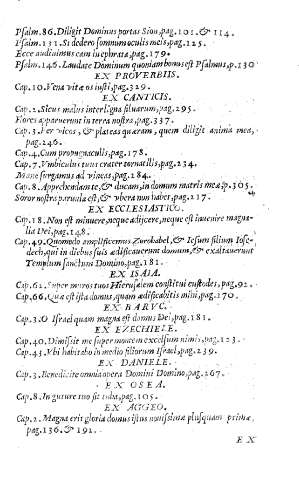 Psalm.86. Diligit Dominus portas Sion, pag.101. & 114.
Psalm.131. Si dedero somnum oculis meis, pag.125.
Ecce audiuimus eam in ephrata, pag.179.
Psalm.146. Laudate Dominum quoniam bonus est Psalmus, p.130
EX PROVERBIIS.
Cap.10. Vena vitæ os iusti, pag.329.
EX CANTICIS.
Cap.2. Sicut malus inter ligna siluarum, pag.295.
Flores apparuerunt in terra nostra, pag.337.
Cap.3. Per vicos, & plateas quæram, quem diligit anima mea,
pag.246.
Cap.4. Cum propugnaculis, pag.178.
Cap.7. Vmbilicus tuus crater tornatilis, pag.234.
Mane surgamus ad vineas, pag.184.
Cap.8. Apprehendam te, & ducam, in domum matris meæ, p.305.
Soror nostra paruula est, & vbera non habet, pag.217.
EX ECCLESIASTICO.
Cap.18. Non est minuere, neque adijcere, neque est inuenire magna-
lia Dei, pag.148.
Cap.49. Quomodo amplificemus Zorobabel, & Iesum filium Iose-
dech, qui in diebus suis ædificauerunt domum, & exaltauerunt
Templum sanctum Domino, pag.181.
EX ISAIA.
Cap.62. Super muros tuos Hierusalem constitui custodes, pag.92.
Cap.66. Quæ est ista domus, quam ædificabitis mihi, pag.170.
EX BARVC.
Cap.3. O Israel quam magna est domus Dei, pag.181.
EX EZECHIELE.
Cap.40. Dimisit me super montem excelsum nimis, pag.123.
Cap.43. Vbi habitabo in medio filiorum Israel, pag.239.
EX DANIELE.
Cap.3. Benedicite omnia opera Domini Domino, pag.267.
EX OSEA.
Cap.8. In guture tuo sit tuba, pag.105.
EX AGGEO.
Cap.2. Magna erit gloria domus istius nouissimæ plusquam primæ,
pag.136. & 191.
EX